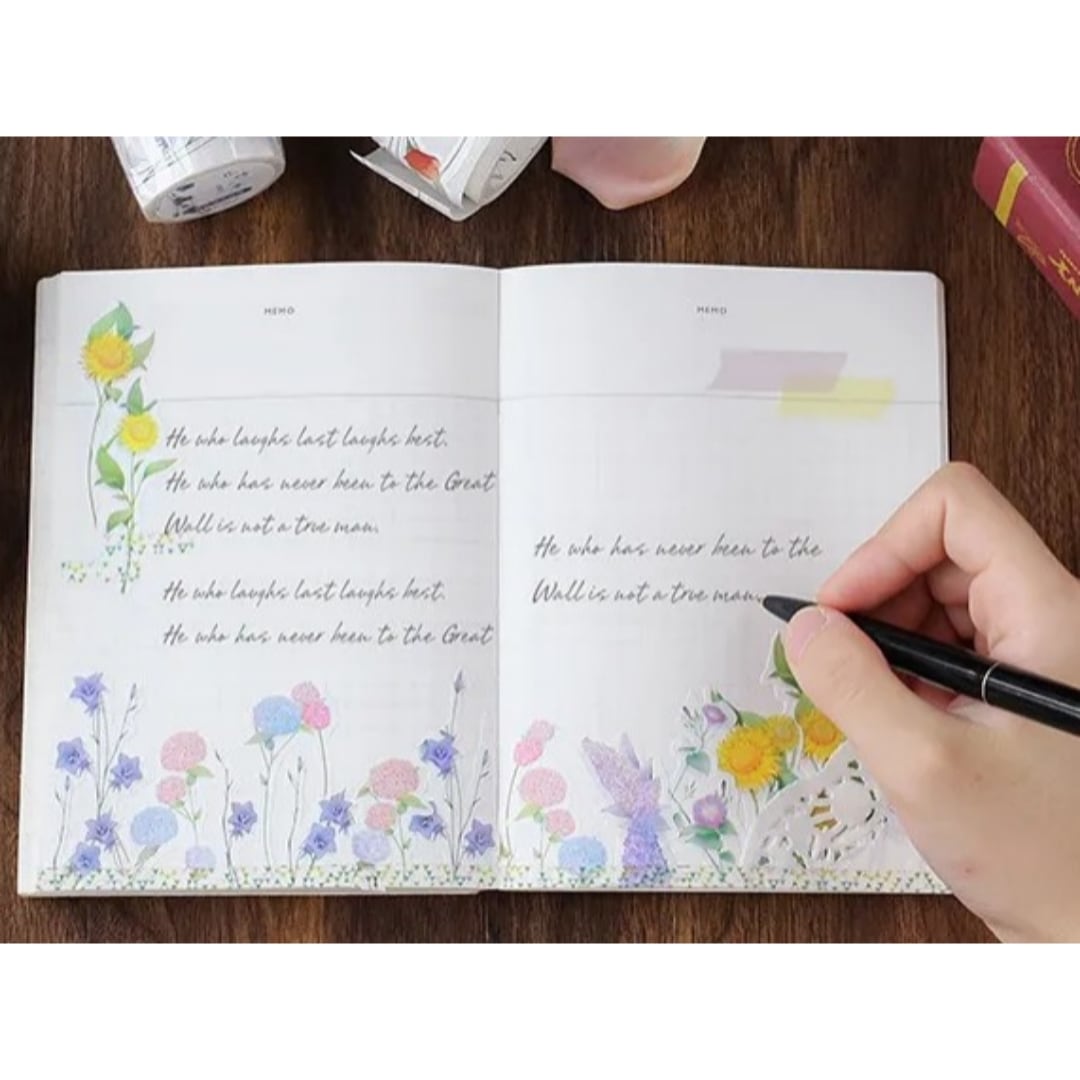 MEMO
He who laughs last laughs best.
He who has never been to the Great
Wall is not a true man.
He who laughs last laughs best.
He who has never been to the Great
MEMO
He who has never been to the
Wall is not a true man.